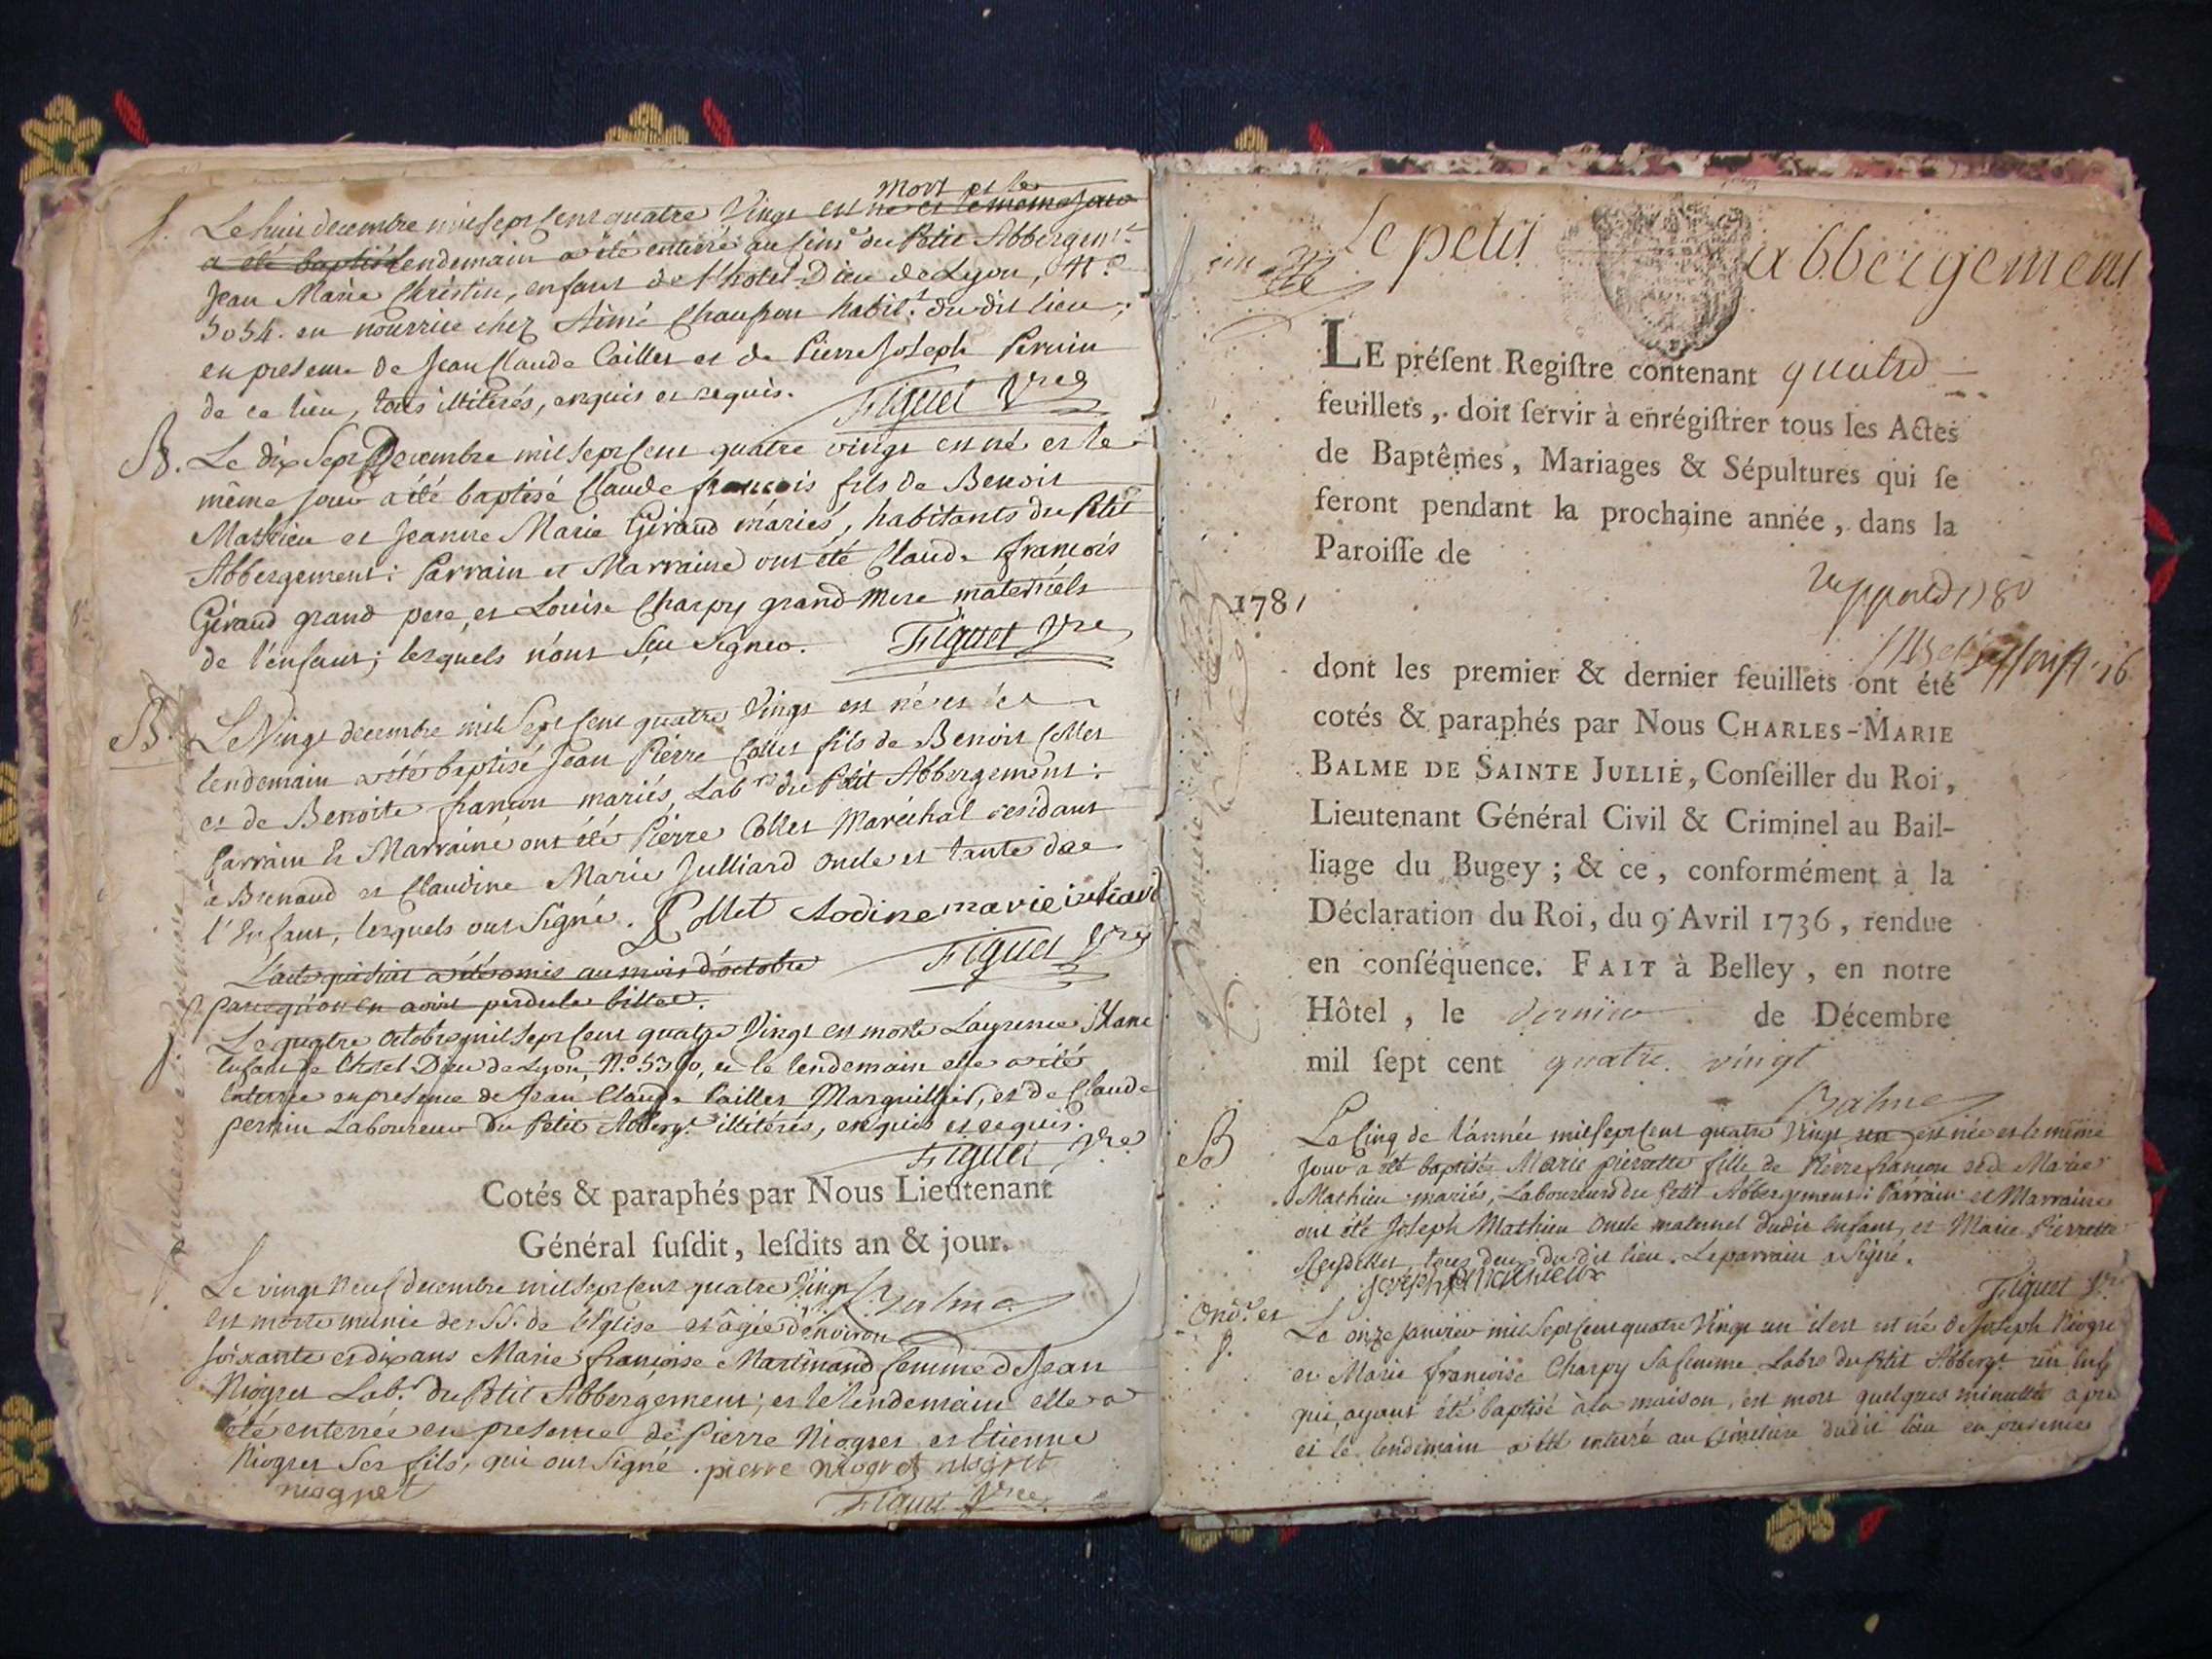 mort et le
S. Le huit decembre mil sept cent quatre vingt est né et le meme jour
a été baptisé lendemain a été enterré au cim.re du Petit Abbergem.t
Jean Marie Christin, enfant de l'hotel-Dieu de Lyon, N.o
5054. en nourrice chez Aimé Chaupon habit.t du dit lieu;
en presence de Jean Claude Cailler et de Pierre Joseph Perrin
de ce lieu, tous illitérés, enquis et requis.
Figuet V.re
B. Le dix sept Decembre mil sept cent quatre vingt est né et le
même jour a été baptisé Claude françois fils de Benoit
Mathieu et Jeanne Marie Géraud mariés, habitants du Petit
Abbergement: Parrain et Marraine ont été Claude françois
Géraud grand pere, et Louise Charpy grand-Mere maternels
de l'enfant; lesquels n'ont sçu signer.
Figuet V.re
B. Le Vingt decembre mil sept cent quatre Vingt est né et le
lendemain a été baptisé Jean Pierre Collet fils de Benoit Collet
et de Benoite françon mariés, Lab.rs du Petit Abbergement:
Parrain et Marraine ont été Pierre Collet Maréchal residant
à Brenaud et Claudine Marie Julliard oncle et tante de
l'Enfant, lesquels ont signé. P Collet clodine marie
Figuet V.re
L'acte a été omis au mois d'octobre
parcequ'on en avoit perdu le billet.
S. Le quatre octobre mil sept cent quatre Vingt est morte Laurence Blanc
Enfant de l'hotel-Dieu de Lyon, N.o 5360, et le lendemain elle a été
Enterrée en presence de Jean Claude Cailler Marguillier, et de Claude
perrin Laboureur du Petit Abberg.t illitérés, enquis et requis.
Figuet V.re
Cotés & paraphés par Nous Lieutenant
Général ſuſdit, leſdits an & jour.
Balme
Le vingt neuf decembre mil sept cent quatre Vingt
est morte munie des SS. de l'Eglise et âgée d'environ
soixante et dix ans Marie françoise Martinand femme de Jean
Niogret Lab.r du Petit Abbergement; et le lendemain elle a
été enterrée en presence de Pierre Niogret et Etienne
Niogret ses fils, qui ont signé. pierre niogret niogret
niogret
Figuet V.re
Le petit abbergement
LE préſent Regiſtre contenant quatre
feuillets, doit ſervir à enrégiſtrer tous les Actes
de Baptêmes, Mariages & Sépultures qui ſe
feront pendant la prochaine année, dans la
Paroiſſe de
1781
dont les premier & dernier feuillets ont été
cotés & paraphés par Nous CHARLES-MARIE
BALME DE SAINTE JULLIE, Conſeiller du Roi,
Lieutenant Général Civil & Criminel au Bail-
liage du Bugey; & ce, conformément à la
Déclaration du Roi, du 9 Avril 1736, rendue
en conſéquence. FAIT à Belley, en notre
Hôtel, le dernier de Décembre
mil ſept cent quatre vingt
Balme
B Le Cinq de l'année mil sept cent quatre Vingt un est née et le même
jour a été baptisée Marie pierrette fille de Pierre françon et de Marie
Mathieu mariés, Laboureurs du Petit Abbergement: Parrain et Marraine
ont été Joseph Mathieu Oncle maternel dudit Enfant, et Marie Pierrette
Reydellet, tous deux du dit lieu. Le parrain a signé.
joseph mathieux
Figuet V.re
Ond. et
S.
Le onze janvier mil sept cent quatre Vingt un il est né de Joseph Niogret
et Marie françoise Charpy sa femme Lab.rs du Petit Abberg.t un Enf
qui, ayant été baptisé à la maison, est mort quelques minuttes apre
et le lendemain a été enterré au cimetiere dudit lieu en presence